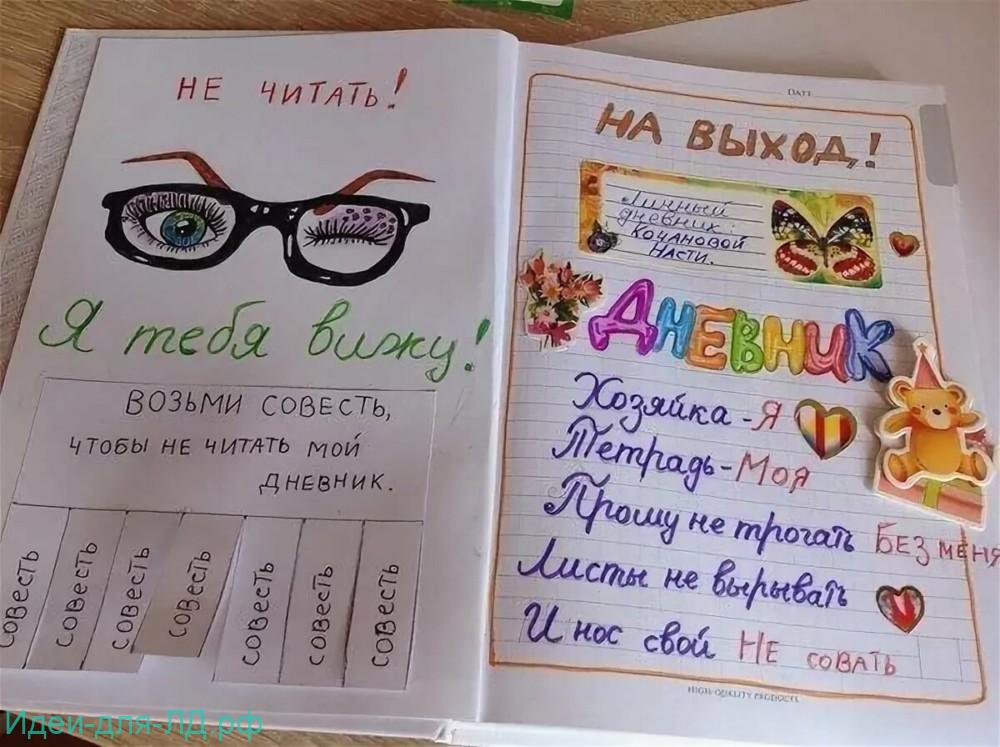 НЕ ЧИТАТЬ!
Я тебя вижу!
ВОЗЬМИ СОВЕСТЬ,
ЧТОБЫ НЕ ЧИТАТЬ МОЙ
ДНЕВНИК.
СОВЕСТЬ
СОВЕСТЬ
СОВЕСТЬ
СОВЕСТЬ
СОВЕСТЬ
СОВЕСТЬ
СОВЕСТЬ
DATE
НА ВЫХОД!
Личный
дневник:
КОЧАНОВОЙ
НАСТИ.
ДНЕВНИК
Хозяйка - Я
Тетрадь - МОЯ
Прошу не трогать БЕЗ МЕНЯ
Листы не вырывать
И нос свой НЕ СОВАТЬ
HIGH-QUALITY PRODUCTS
Идеи-для-ЛД.рф